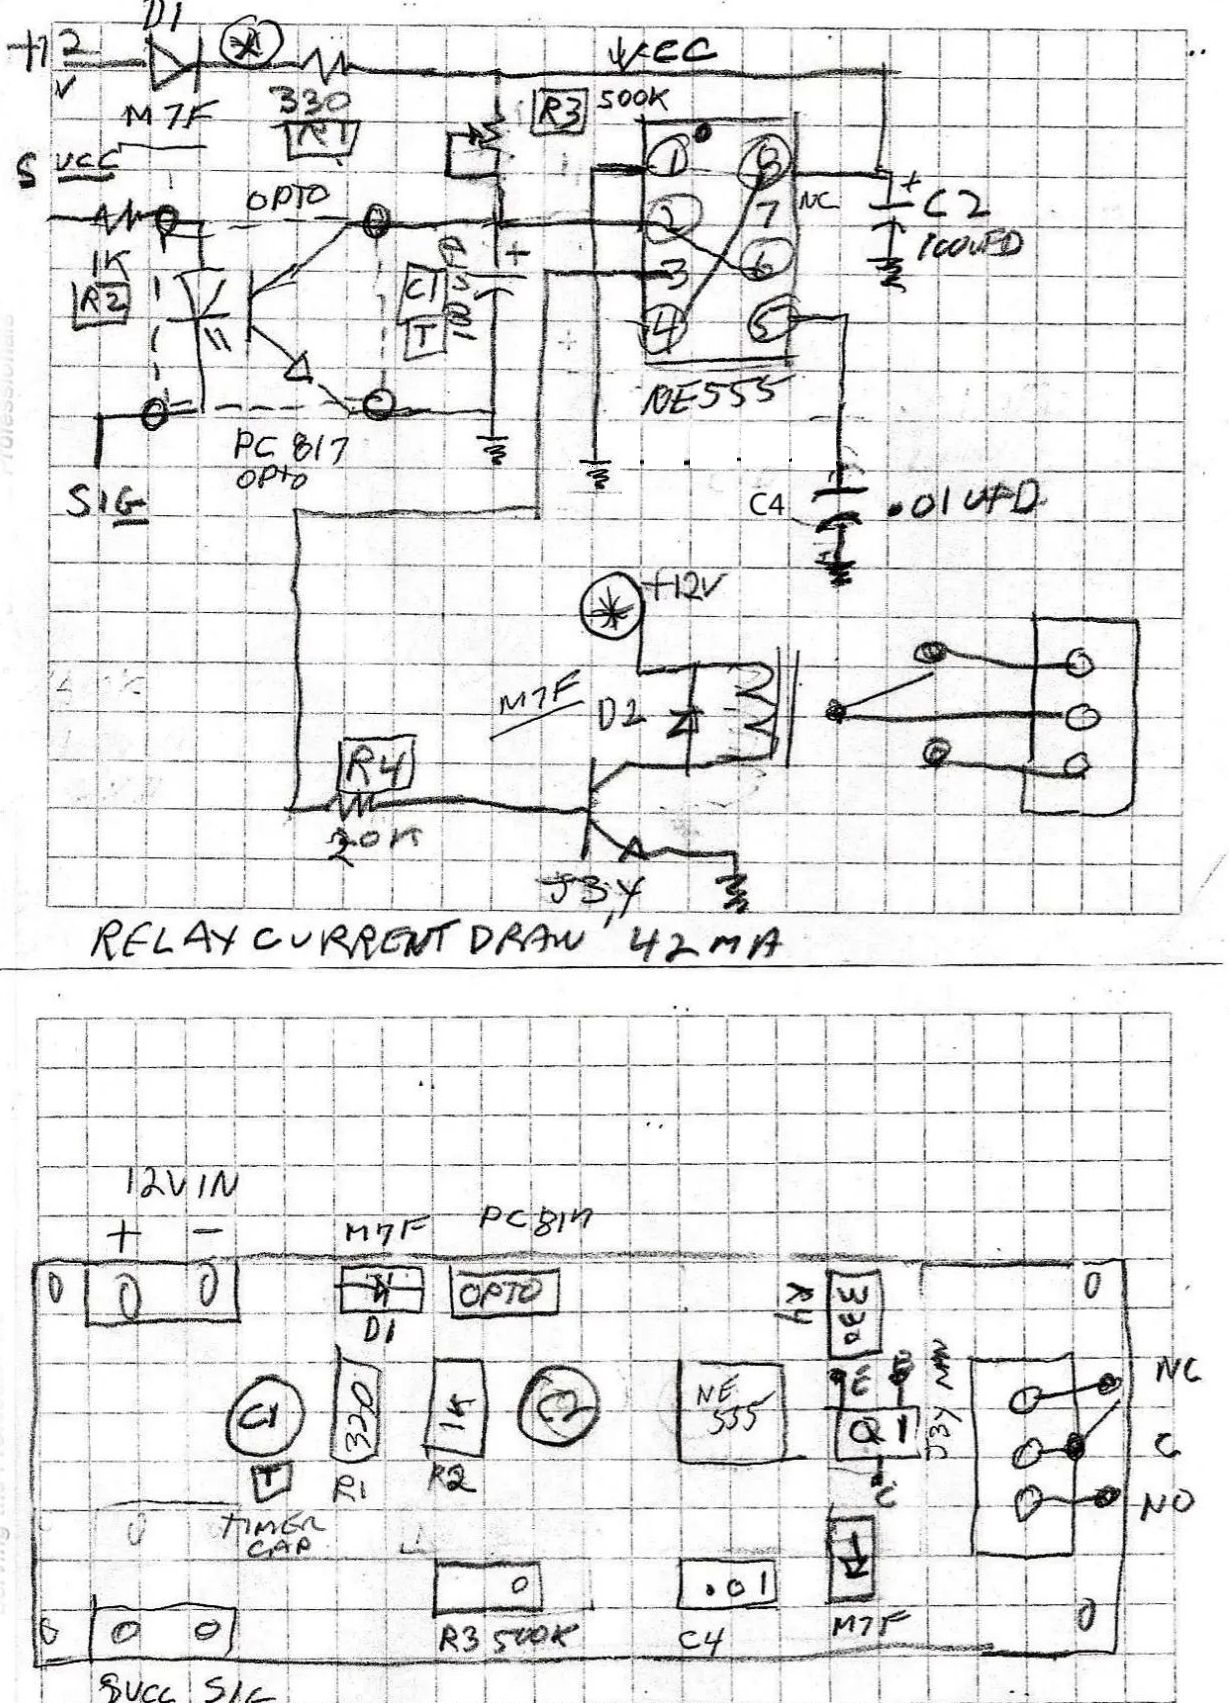 D1
+12
V
330
R1
VCC
R3 500K
M7F
S VCC
OPTO
1
8
2
7
NC
+
C2
100UFD
1K
R2
C1
T
+
3
6
4
5
NE555
PC 817
OPTO
SIG
C4
.01UFD
+12V
M7F
D2
R4
20K
J3Y
RELAY CURRENT DRAW 42MA
12V IN
+ -
M7F
PC817
OPTO
D1
R4
330
E
B
NPN
NC
C1
320
1K
C2
NE
555
Q1
J3Y
C
T
R1
R2
C
NO
TIMER
CAP
.01
R3 500K
C4
M7F
SVCC SIG